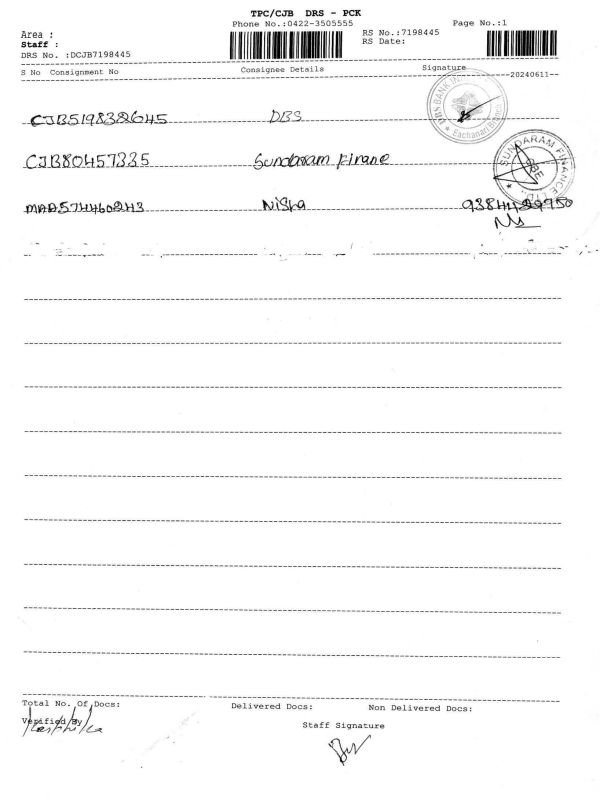 TPC/CJB DRS - PCK
Phone No.:0422-3505555
Page No.:1
Area :
RS No.:7198445
Staff :
RS Date:
DRS No. :DCJB7198445
S No Consignment No Consignee Details Signature
20240611
CJB519832645 DBS
DBS BANK IN
Eachanari Branch
CJB80457335 Sundaram Finane
SUNDARAM FINANCE LTD.
CBE
MAA574460243 Nisha 9384429750
Total No. Of Docs: Delivered Docs: Non Delivered Docs:
Verified By
Staff Signature